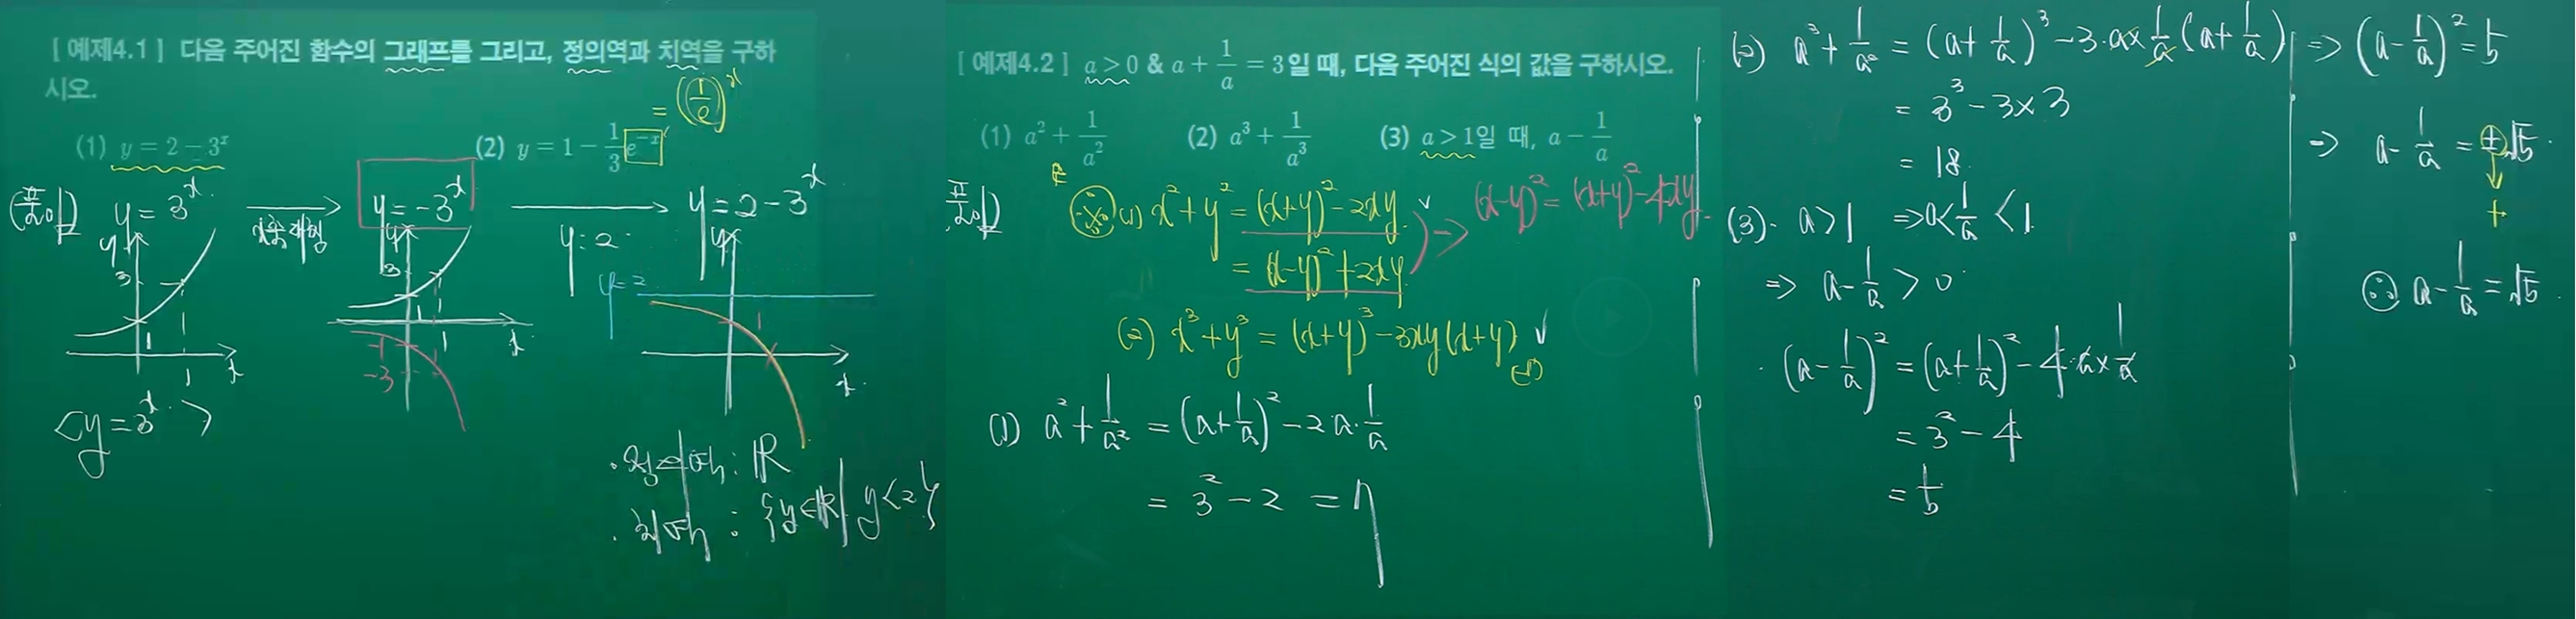 [ 예제4.1 ] 다음 주어진 함수의 그래프를 그리고, 정의역과 치역을 구하
시오.
= (1/e)^x
(1) y = 2 − 3^x (2) y = 1 − 1/3 e^−x
풀이) y = 3^x → x축대칭 y = −3^x → y: 2 y = 2 − 3^x
y y y
3 3 y = 2
1 1 1
1 x 1 x x
−1
−3
<y = 3^x>
· 정의역 : ℝ
· 치역 : {y ∈ ℝ | y < 2}
[ 예제4.2 ] a > 0 & a + 1/a = 3일 때, 다음 주어진 식의 값을 구하시오.
(1) a² + 1/a² (2) a³ + 1/a³ (3) a > 1일 때, a − 1/a
풀이) ※ (1) x² + y² = (x+y)² − 2xy
= (x−y)² + 2xy
=> (x−y)² = (x+y)² − 4xy
(2) x³ + y³ = (x+y)³ − 3xy(x+y)
(−)
(1) a² + 1/a² = (a + 1/a)² − 2a · 1/a
= 3² − 2 = 7
(2) a³ + 1/a³ = (a + 1/a)³ − 3·a × 1/a (a + 1/a)
= 3³ − 3×3
= 18
(3) · a > 1 => 0 < 1/a < 1
=> a − 1/a > 0
· (a − 1/a)² = (a + 1/a)² − 4·a × 1/a
= 3² − 4
= 5
=> (a − 1/a)² = 5
=> a − 1/a = ±√5
+
∴ a − 1/a = √5